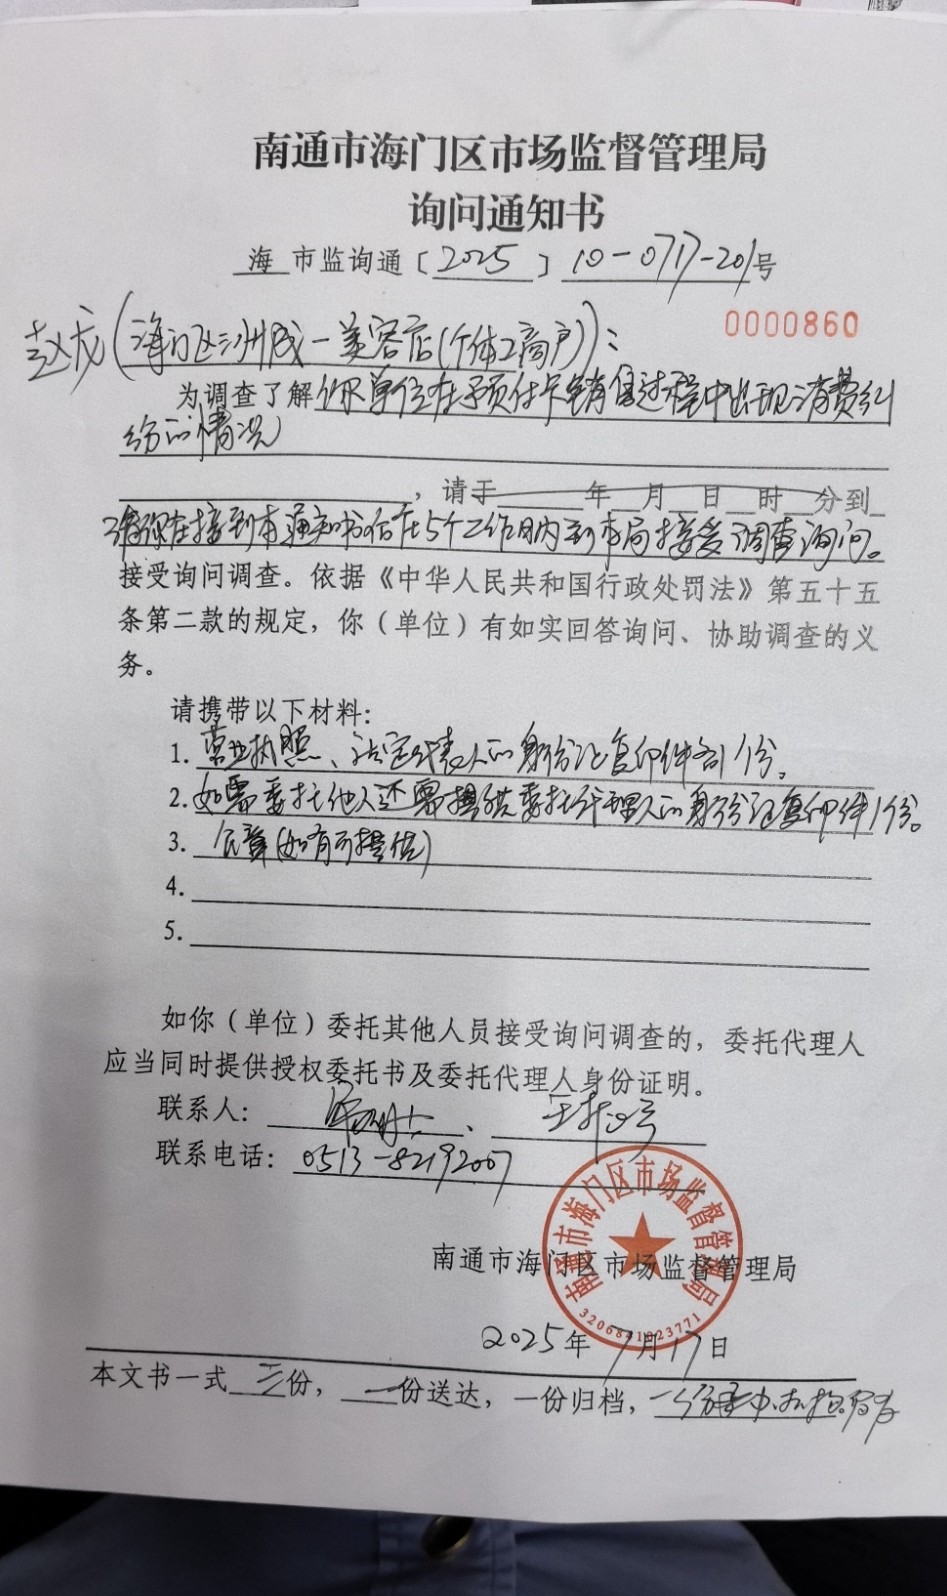 南通市海门区市场监督管理局
询问通知书
海 市监询通〔2025〕10-0717-201号
0000860
赵龙(海门区三洲成一美容店(个体工商户)):
为调查了解你单位在予页付卡销售过程中出现消费纠
纷的情况
,请于 年 月 日 时 分到
请你在接到本通知书后在5个工作日内到本局接受调查询问。
接受询问调查。依据《中华人民共和国行政处罚法》第五十五
条第二款的规定,你(单位)有如实回答询问、协助调查的义
务。
请携带以下材料:
1. 营业执照、法定代表人的身份证复印件各1份。
2. 如需委托他人还需提供委托代理人的身份证复印件1份。
3. 公章(如有可提供)
4.
5.
如你(单位)委托其他人员接受询问调查的,委托代理人
应当同时提供授权委托书及委托代理人身份证明。
联系人: 、
联系电话: 0513-82192007
南通市海门区市场监督管理局
南通市海门区市场监督管理局
2025年7月17日
本文书一式三份,一份送达,一份归档,一份